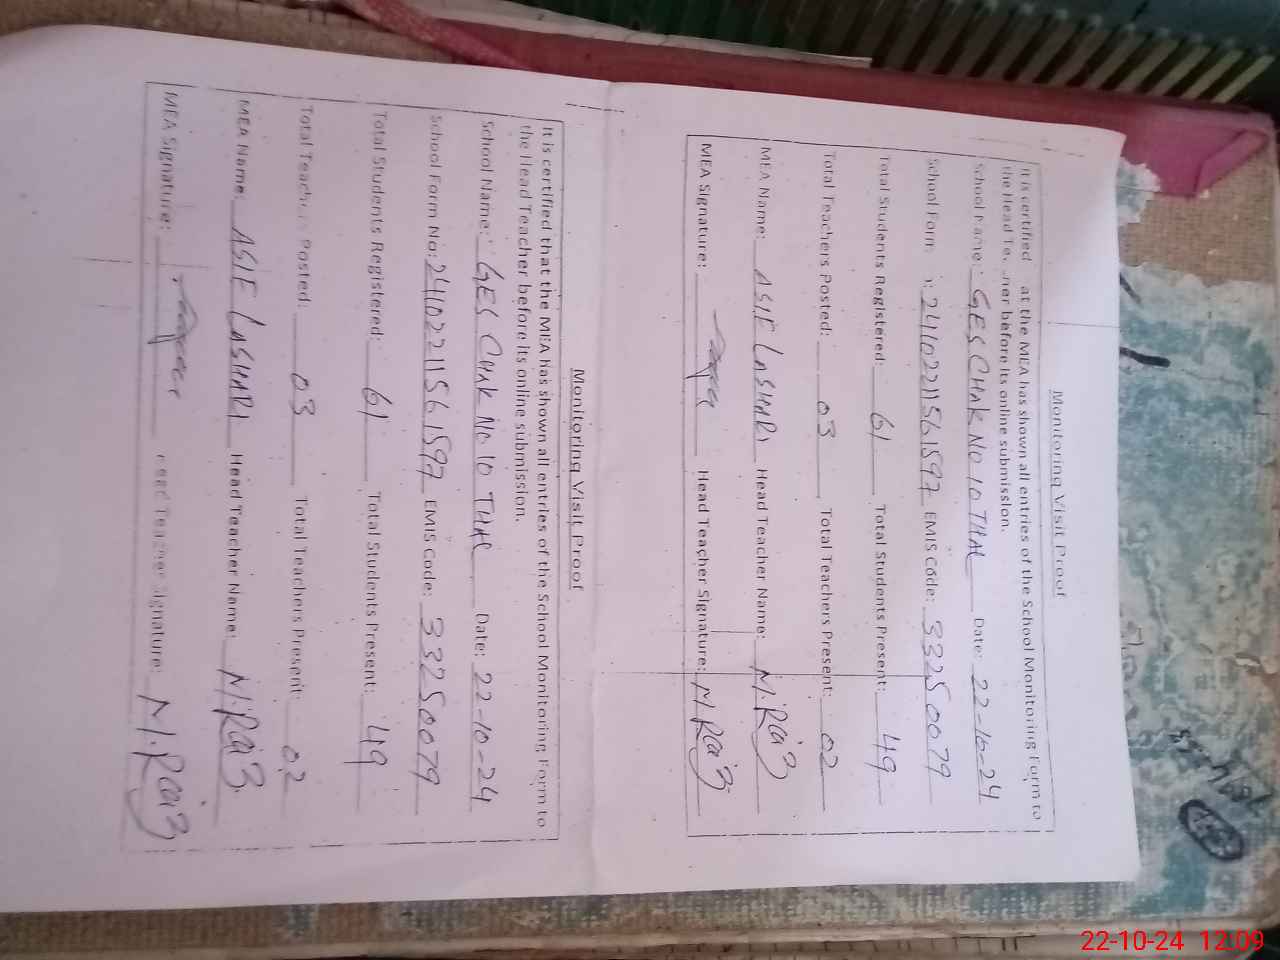 Monitoring Visit Proof
It is certified at the MEA has shown all entries of the School Monitoring Form to
the Head Te. her before its online submission.
School Name: GES CHAK NO 10 THAL Date: 22-10-24
School Form : 24102211561597 EMIS Code: 33250079
Total Students Registered: 61 Total Students Present: 49
Total Teachers Posted: 03 Total Teachers Present: 02
MEA Name: ASIF LASHARI Head Teacher Name: M.Raiz
MEA Signature: Head Teacher Signature: M.Raiz
Monitoring Visit Proof
It is certified that the MEA has shown all entries of the School Monitoring Form to
the Head Teacher before its online submission.
School Name: GES CHAK NO 10 THAL Date: 22-10-24
School Form No: 24102211561597 EMIS Code: 33250079
Total Students Registered: 61 Total Students Present: 49
Total Teachers Posted: 03 Total Teachers Present: 02
MEA Name: ASIF LASHARI Head Teacher Name: M.Raiz
MEA Signature: Head Teacher Signature: M.Raiz
22-10-24 12:09